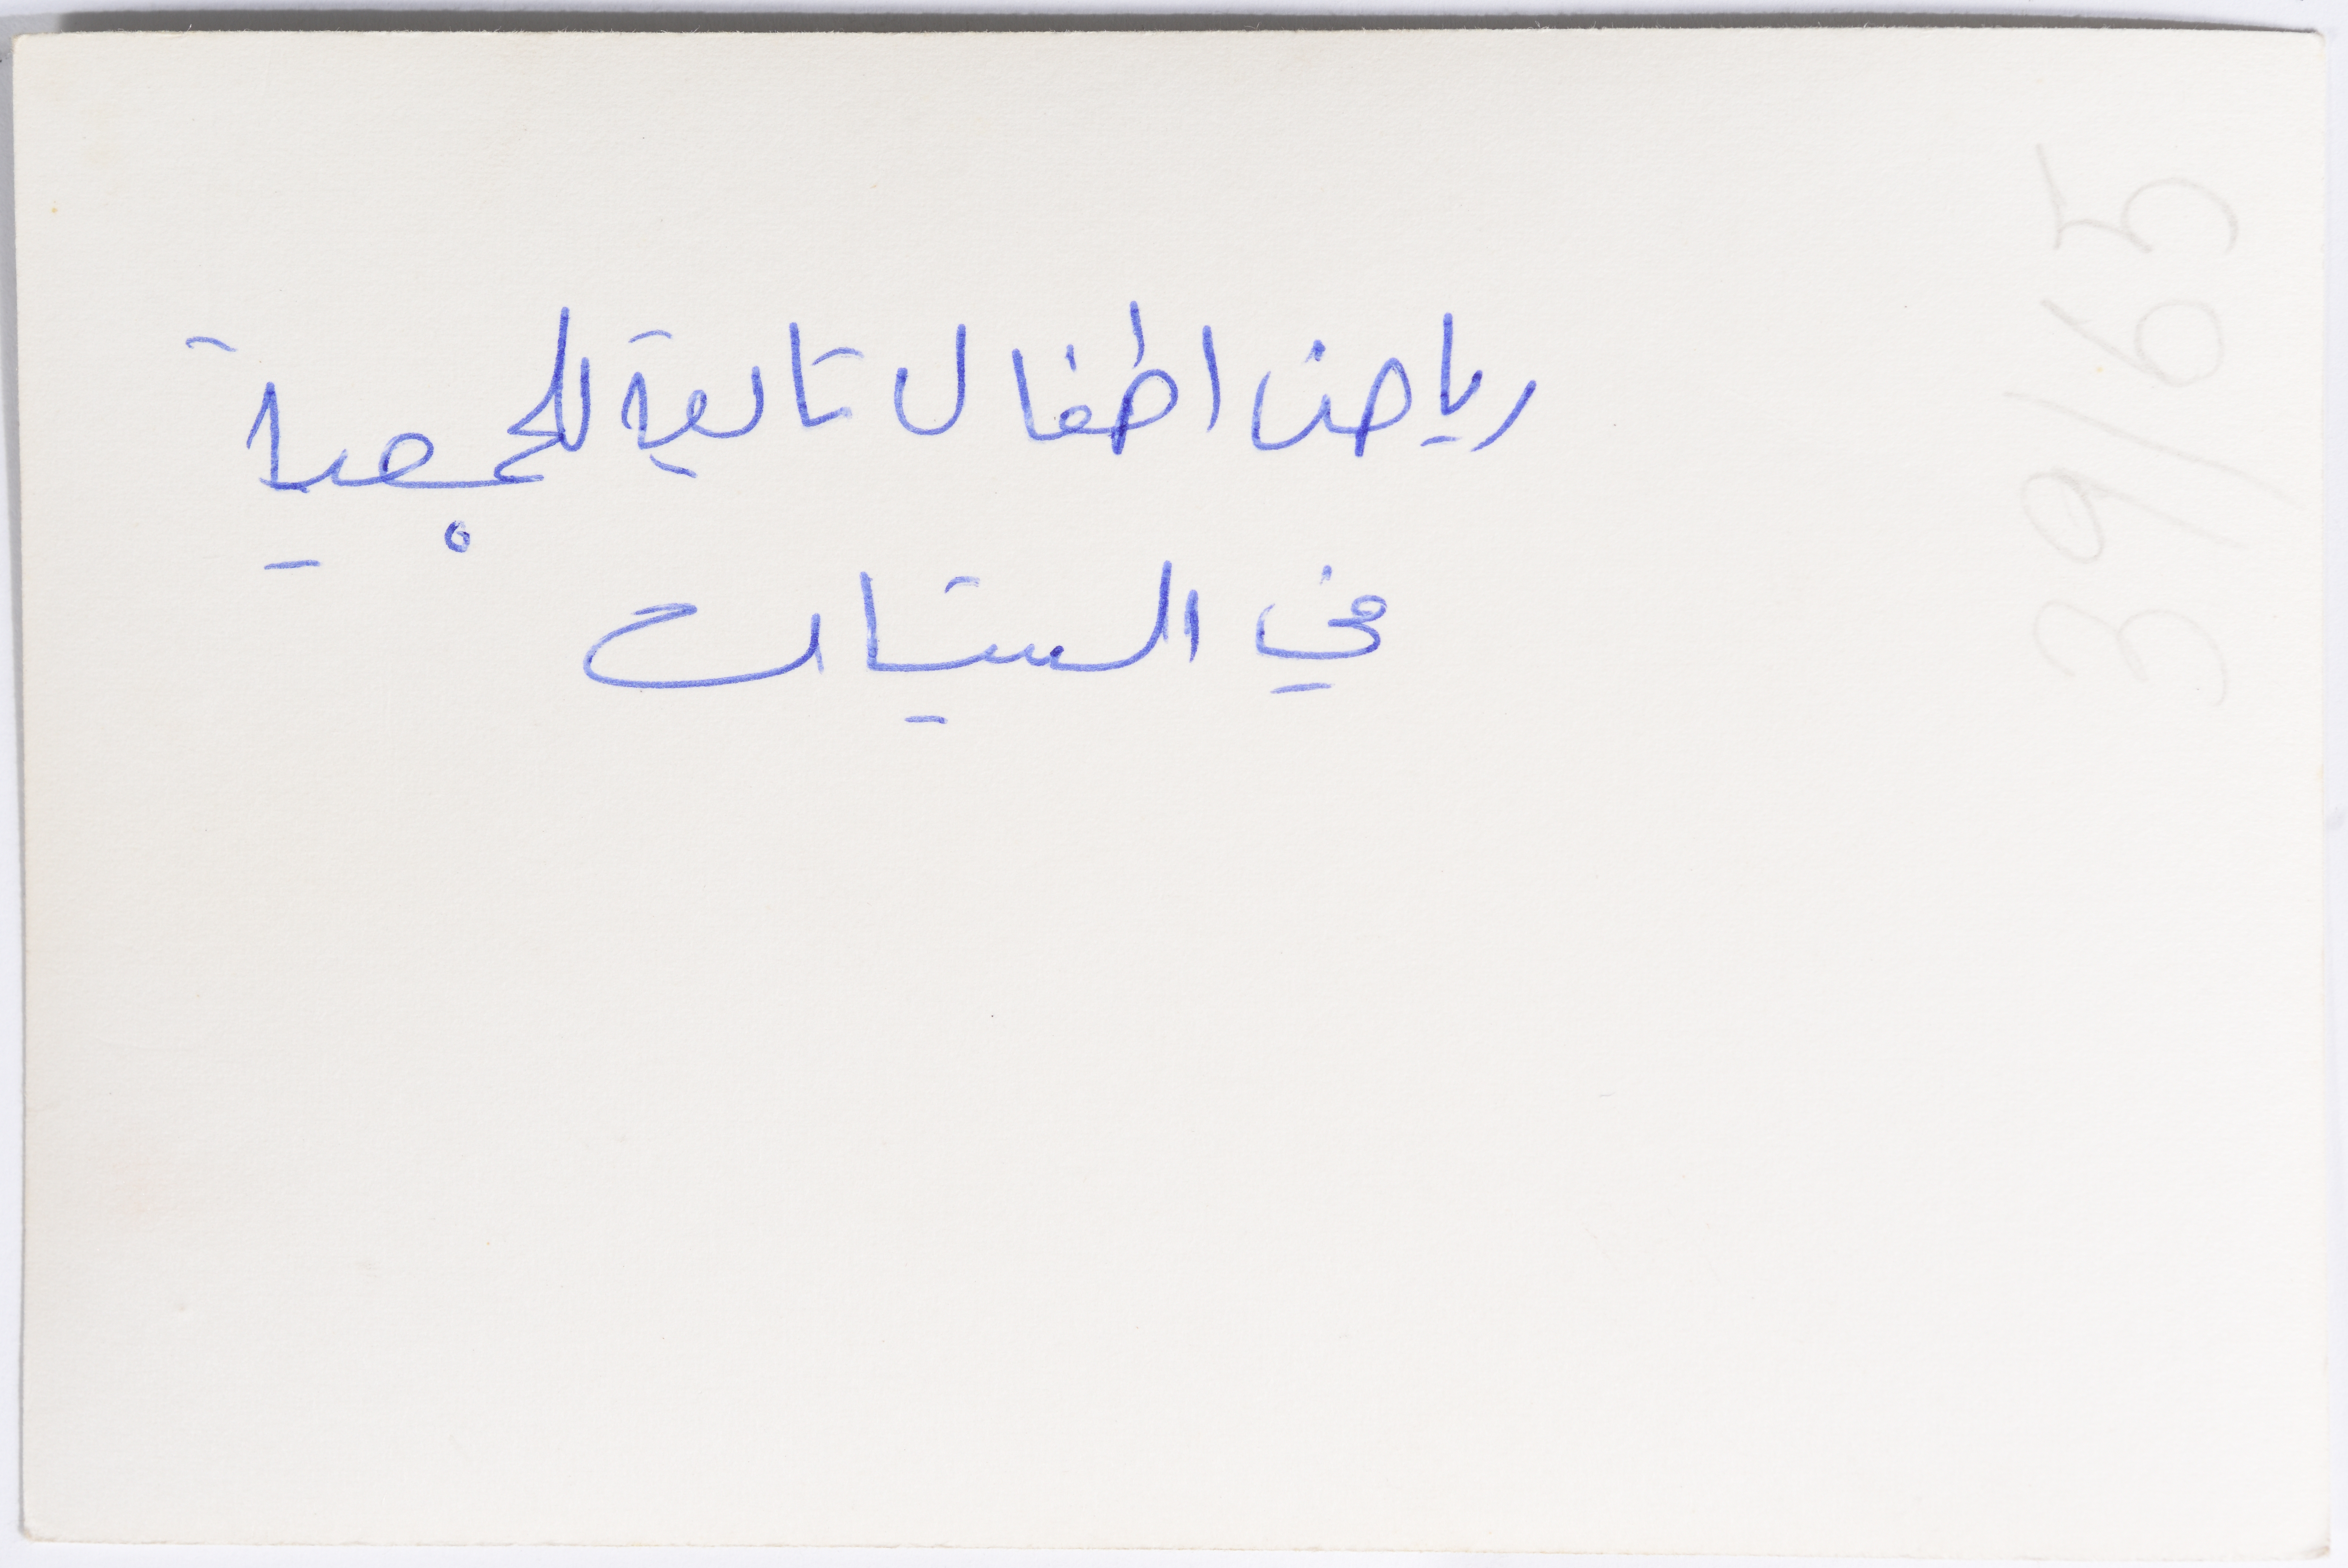 رياض اطفال تابعة للجمعية
في الستيات
39/65